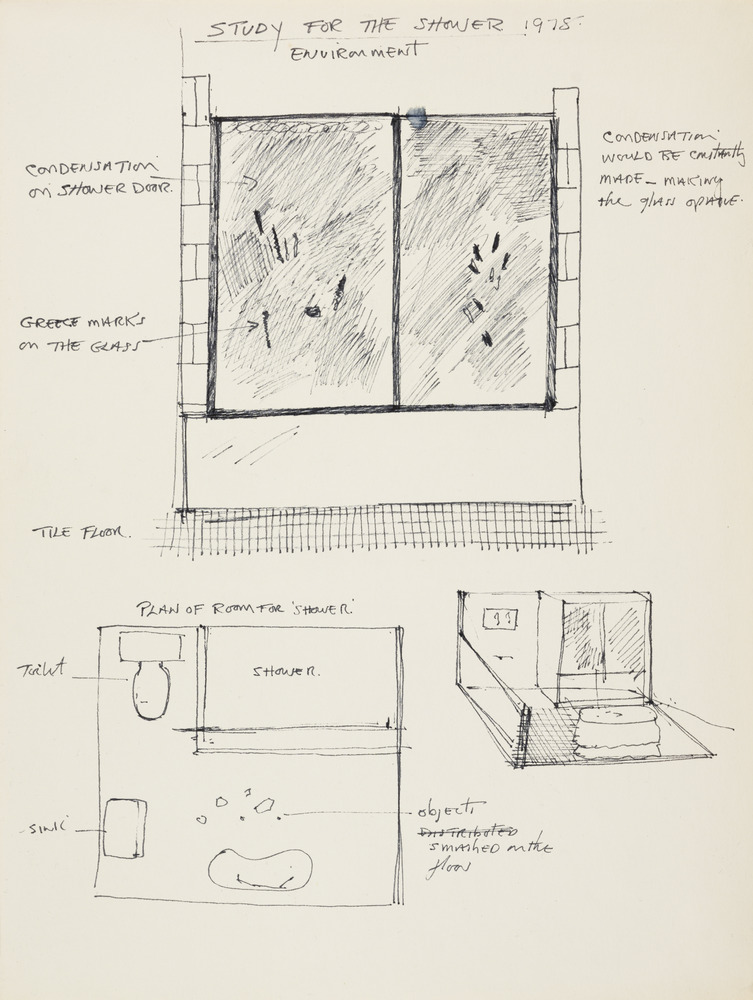 STUDY FOR THE SHOWER 1978.
ENVIRONMENT
CONDENSATION
ON SHOWER DOOR.
CONDENSATION
WOULD BE constantly
MADE - MAKING
the glass OPAQUE.
GREECE MARKS
ON THE GLASS
TILE FLOOR.
PLAN OF ROOM FOR 'SHOWER'
Toilet
SHOWER.
SINK
objects
DISTRIBUTED
SMASHED on the
floor